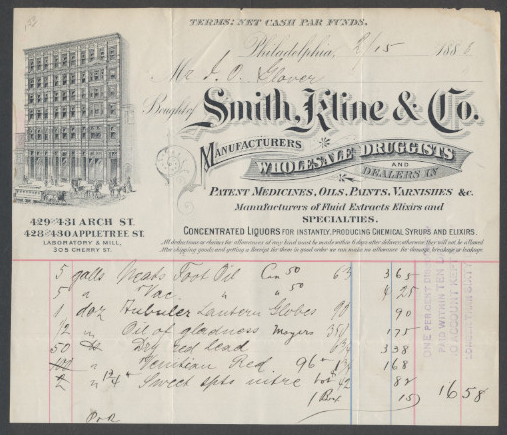 TERMS: NET CASH PAR FUNDS.
Philadelphia, 2/15 188
Mr J. O. Glover
Bought of Smith, Kline & Co.
MANUFACTURERS
WHOLESALE DRUGGISTS
AND
DEALERS IN
PATENT MEDICINES, OILS, PAINTS, VARNISHES &c.
Manufacturers of Fluid Extracts Elixirs and
SPECIALTIES.
CONCENTRATED LIQUORS FOR INSTANTLY PRODUCING CHEMICAL SYRUPS AND ELIXIRS.
All deductions or claims for allowances of any kind must be made within 5 days after delivery, otherwise they will not be allowed
After shipping goods and getting a Receipt for them in good order we can make no allowance for damage, breakage or leakage
429 AND 431 ARCH ST.
428 AND 430 APPLETREE ST.
LABORATORY & MILL,
305 CHERRY ST.
5 galls Neats Foot Oil Can 50 63 3 65
5 " Vac. " " 50 4 25
1 doz Tubular Lantern Globes 90 90
1/2 " Oil of gladness Meyers 350 1 75
50 Dry red Lead 6 3/4 3 38
Venitian Red 96 1 3/4 1 68
2 " Sweet spts nitre bot 42 82
1 Box 15 16 58
ONE PER CENT
PAID WITHIN TEN
NO ACCOUNT KEPT
LONGER THAN SIXTY